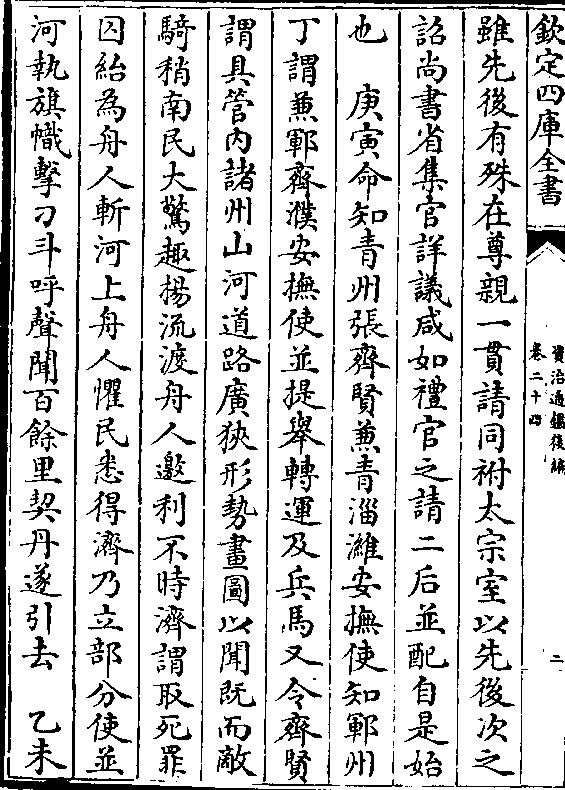 欽定四庫全書
資治通鑑後編
卷二十四
二
雖先後有殊在尊親一貫請同祔太宗室以先後次之
詔尚書省集官詳議咸如禮官之請二后並配自是始
也　庚寅命知青州張齊賢兼青淄濰安撫使知鄆州
丁謂兼鄆齊濮安撫使並提舉轉運及兵馬又令齊賢
謂具管內諸州山河道路廣狹形勢畫圖以聞既而敵
騎稍南民大驚趣揚流渡舟人邀利不時濟謂取死罪
囚紿為舟人斬河上舟人懼民悉得濟乃立部分使並
河執旗幟擊刁斗呼聲聞百餘里契丹遂引去　乙未